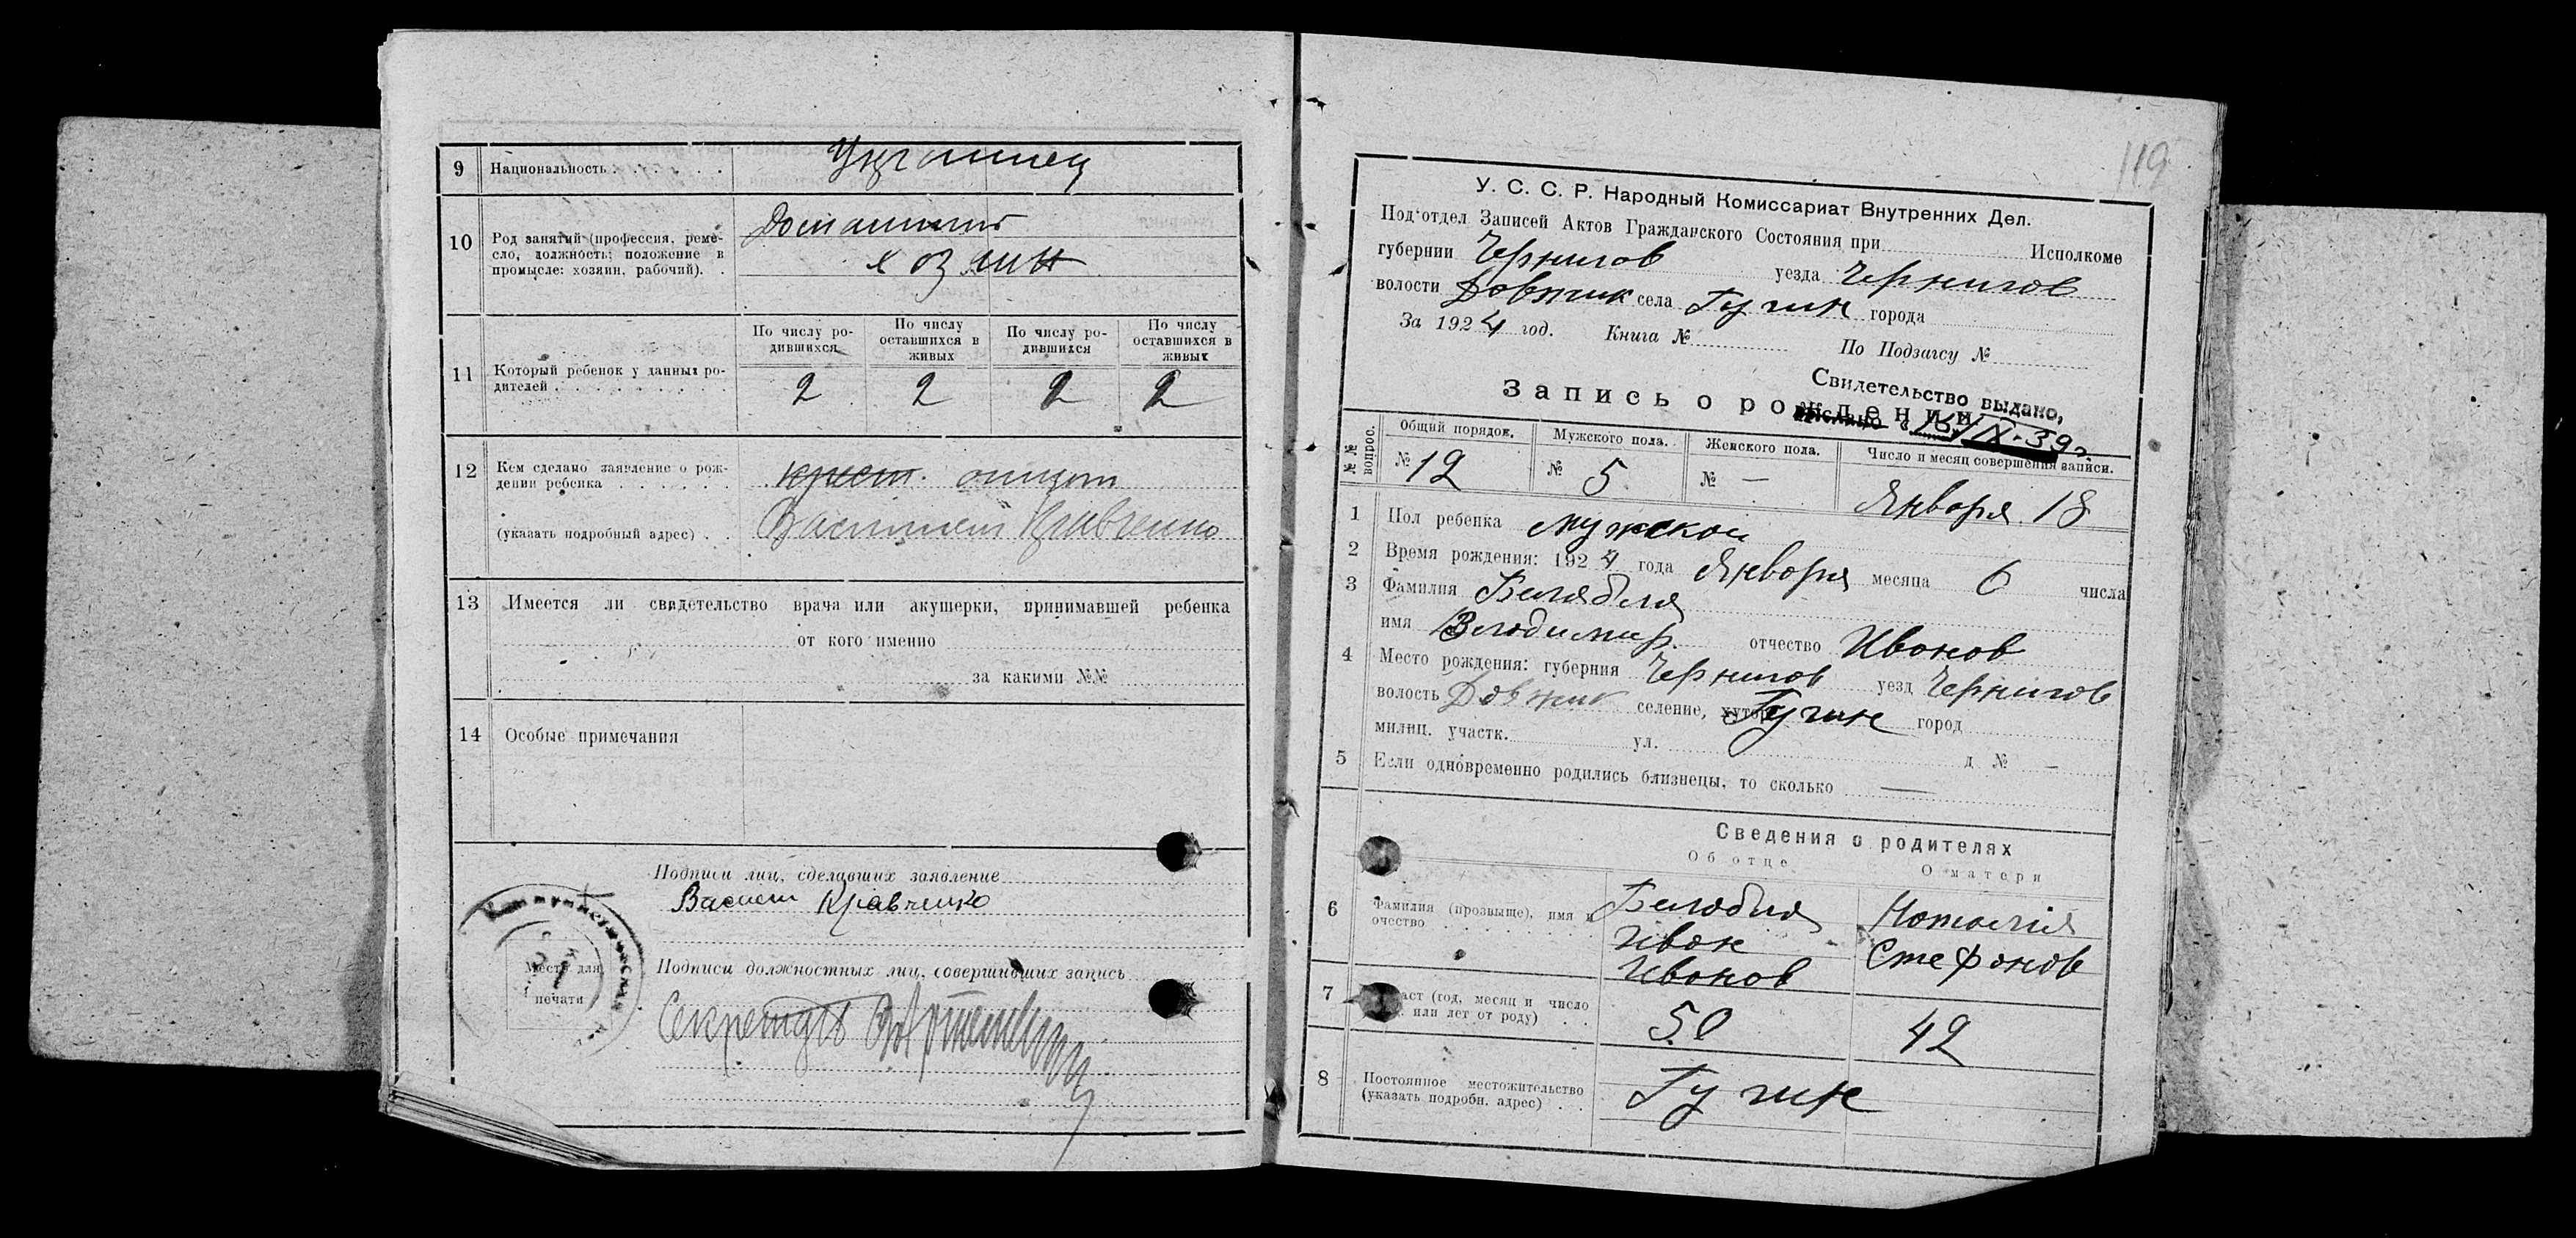 9 Национальность Украинец
10 Род занятий (профессия, реме-
сло, должность; положение в
промысле: хозяин, рабочий).
Домашний
хозяин
11 Который ребенок у данных ро-
дителей
По числу ро-
дившихся
По числу
оставшихся в
живых
По числу ро-
дившихся
По числу
оставшихся в
живых
2 2 2 2
12 Кем сделано заявление о рож-
дении ребенка крест. отцом
(указать подробный адрес) Василием Кравченко
13 Имеется ли свидетельство врача или акушерки, принимавшей ребенка
от кого именно
за какими №№
14 Особые примечания
Подписи лиц, сделавших заявление
Василий Кравченко
Место для
печати
Подписи должностных лиц, совершивших запись
Секретарь
119
У. С. С. Р. Народный Комиссариат Внутренних Дел.
Под'отдел Записей Актов Гражданского Состояния при Исполкоме
губернии Чернигов уезда Чернигов
волости Довжик села Гучин города
За 1924 год. Книга № По Подзагсу №
Свидетельство выдано,
Запись о рождении
IX-39 г.
№№ вопрос.
Общий порядок. Мужского пола. Женского пола. Число и месяц совершения записи.
№ 12 № 5 № — Января 18
1 Пол ребенка мужской
2 Время рождения: 1924 года Января месяца 6 числа
3 Фамилия Белябля
имя Володимир отчество Иванов
4 Место рождения: губерния Чернигов уезд Чернигов
волость Довжик селение, хутор Гучин город
милиц. участк. ул. д № —
5 Если одновременно родились близнецы, то сколько —
Сведения о родителях
Об отце О матери
6 Фамилия (прозвище), имя и
очество
Белябля
Иван
Иванов
Наталия
Стефанов
7 раст (год, месяц и число
или лет от роду) 50 42
8 Постоянное местожительство
(указать подробн. адрес) Гучин